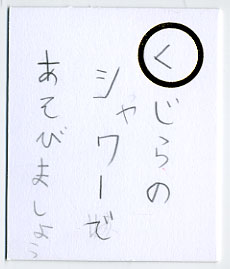 くじらの
シャワーで
あそびましょう